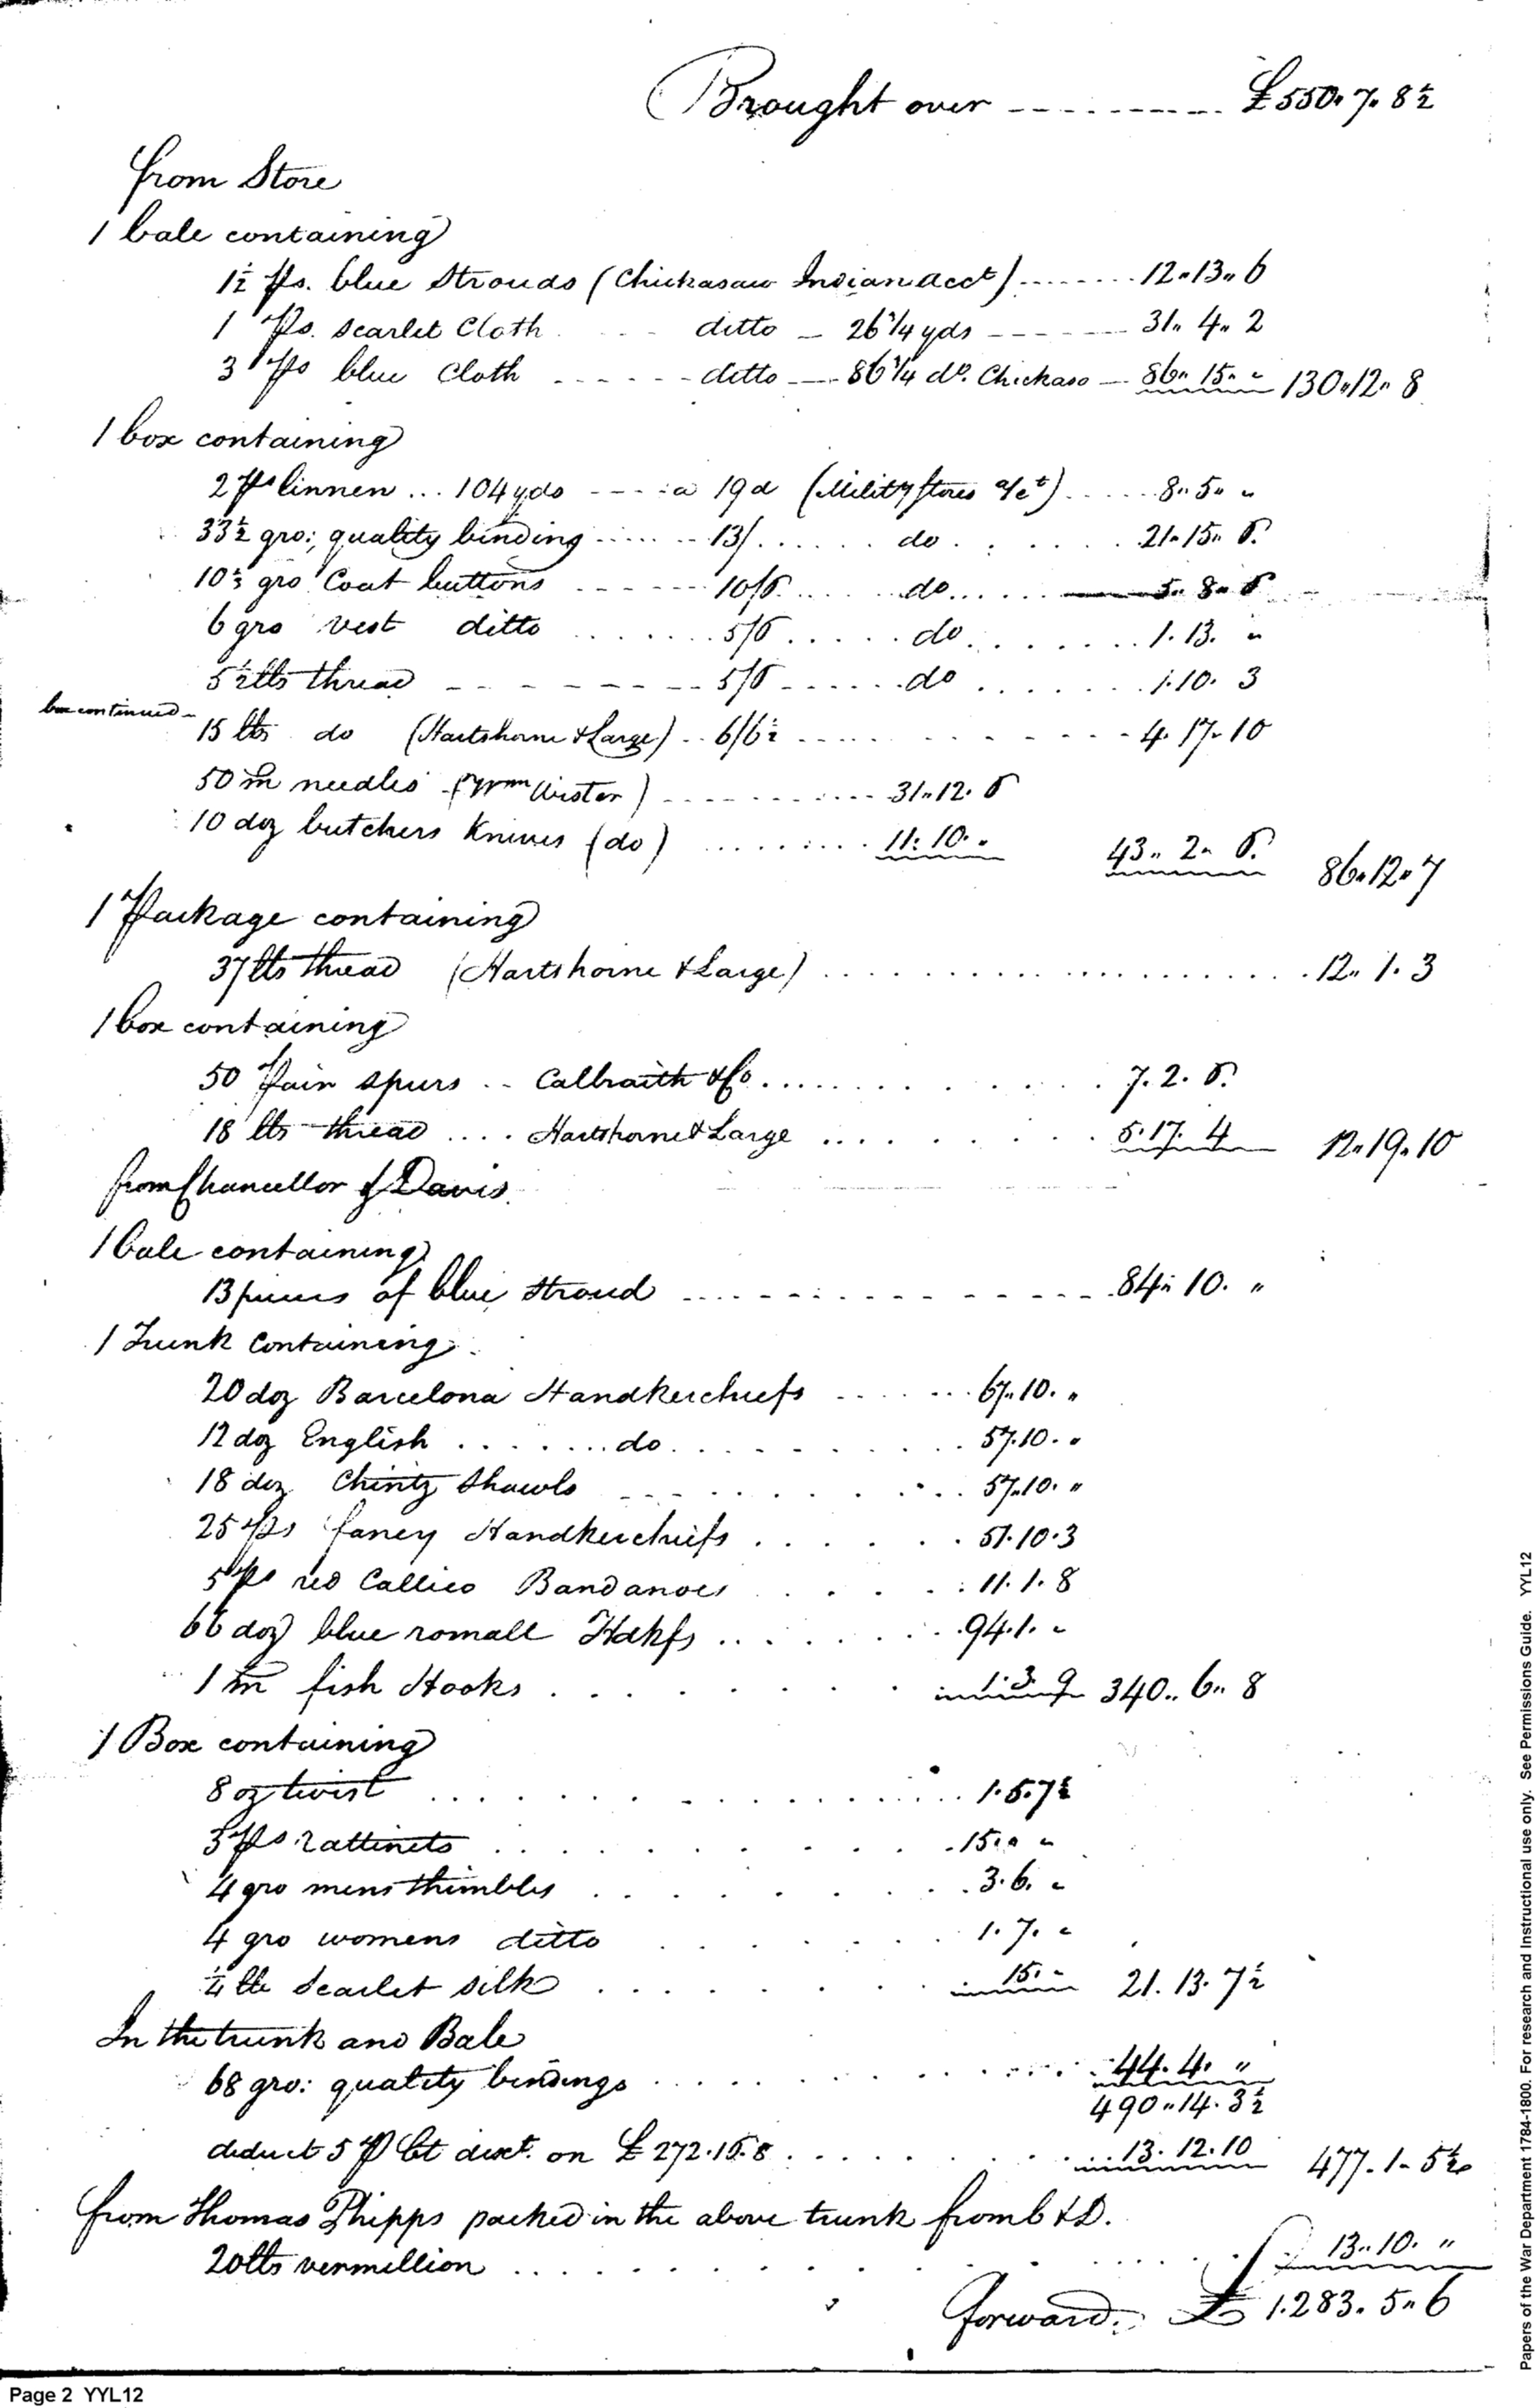 Brought over ---------- £550.7.8½
from Store
1 bale containing
1½ ps. blue Strouds (Chickasaw Indian acct) ------- 12„13„6
1 ps. scarlet Cloth ---- ditto - 26¾ yds ------- 31„4„2
3 ps blue Cloth ------ ditto --- 86¾ do. Chickaso --- 86„15„„ 130„12„8
1 box containing
2 ps linnen ... 104 yds ---- a 19d (Military stores a/ct) ..... 8„5„„
33½ gro; quality binding ....... 13/ ...... do ...... 21„15„6
10⅓ gro Coat buttons ------ 10/6 ..... do ..... 5„8„6
6 gro vest ditto ....... 5/6 ..... do ....... 1.13.„
5½ lbs thread -------- 5/6 ...... do ....... 1.10.3
box continued - 15 lbs do (Hartshorne & Large) .. 6/6½ ---------- 4.17.10
50 m needles (Wm Wister) ---------- 31„12.6
10 doz butchers Knives (do) ........ 11.10.„ 43„2„6. 86„12„7
1 Package containing
37 lbs thread (Hartshorne & Large) .................... 12„1.3
1 box containing
50 pair spurs .. Calbraith & Co. ............ 7.2.6.
18 lbs thread .... Hartshorne & Large ......... 5.17.4 12„19„10
from Chancellor & Davis
1 bale containing
13 pieces of blue stroud ------------- 84„10.„
1 Trunk Containing
20 doz Barcelona Handkerchiefs ------- 67„10.„
12 doz English ....... do .......... 57.10.„
18 doz Chintz Shawls ---------- 57„10.„
25 ps fancy Handkerchiefs ...... 51.10.3
5 ps red Callico Bandanoes ..... 11.1.8
66 doz blue romall Hdkfs ........ 94.1.„
1 m fish Hooks ........ 1.3.9 340„6„8
1 Box containing
8 oz twist ............... 1.5.7½
3 ps rattinets .......... 15.„„
4 gro mens thimbles ......... 3.6.„
4 gro womens ditto ....... 1.7.„
¼ lb Scarlet silk ........ 15.„ 21.13.7½
In the trunk and Bale
68 gro: quality bindings ........... 44.4.„
490„14.3½
deduct 5 p Ct disct. on £272.16.8 .......... 13.12.10 477.1.5½
from Thomas Phipps packed in the above trunk from C & D.
20 lbs vermillion ............ 13„10.„
forward. £1.283.5„6
Page 2 YYL12
Papers of the War Department 1784-1800. For research and Instructional use only. See Permissions Guide. YYL12